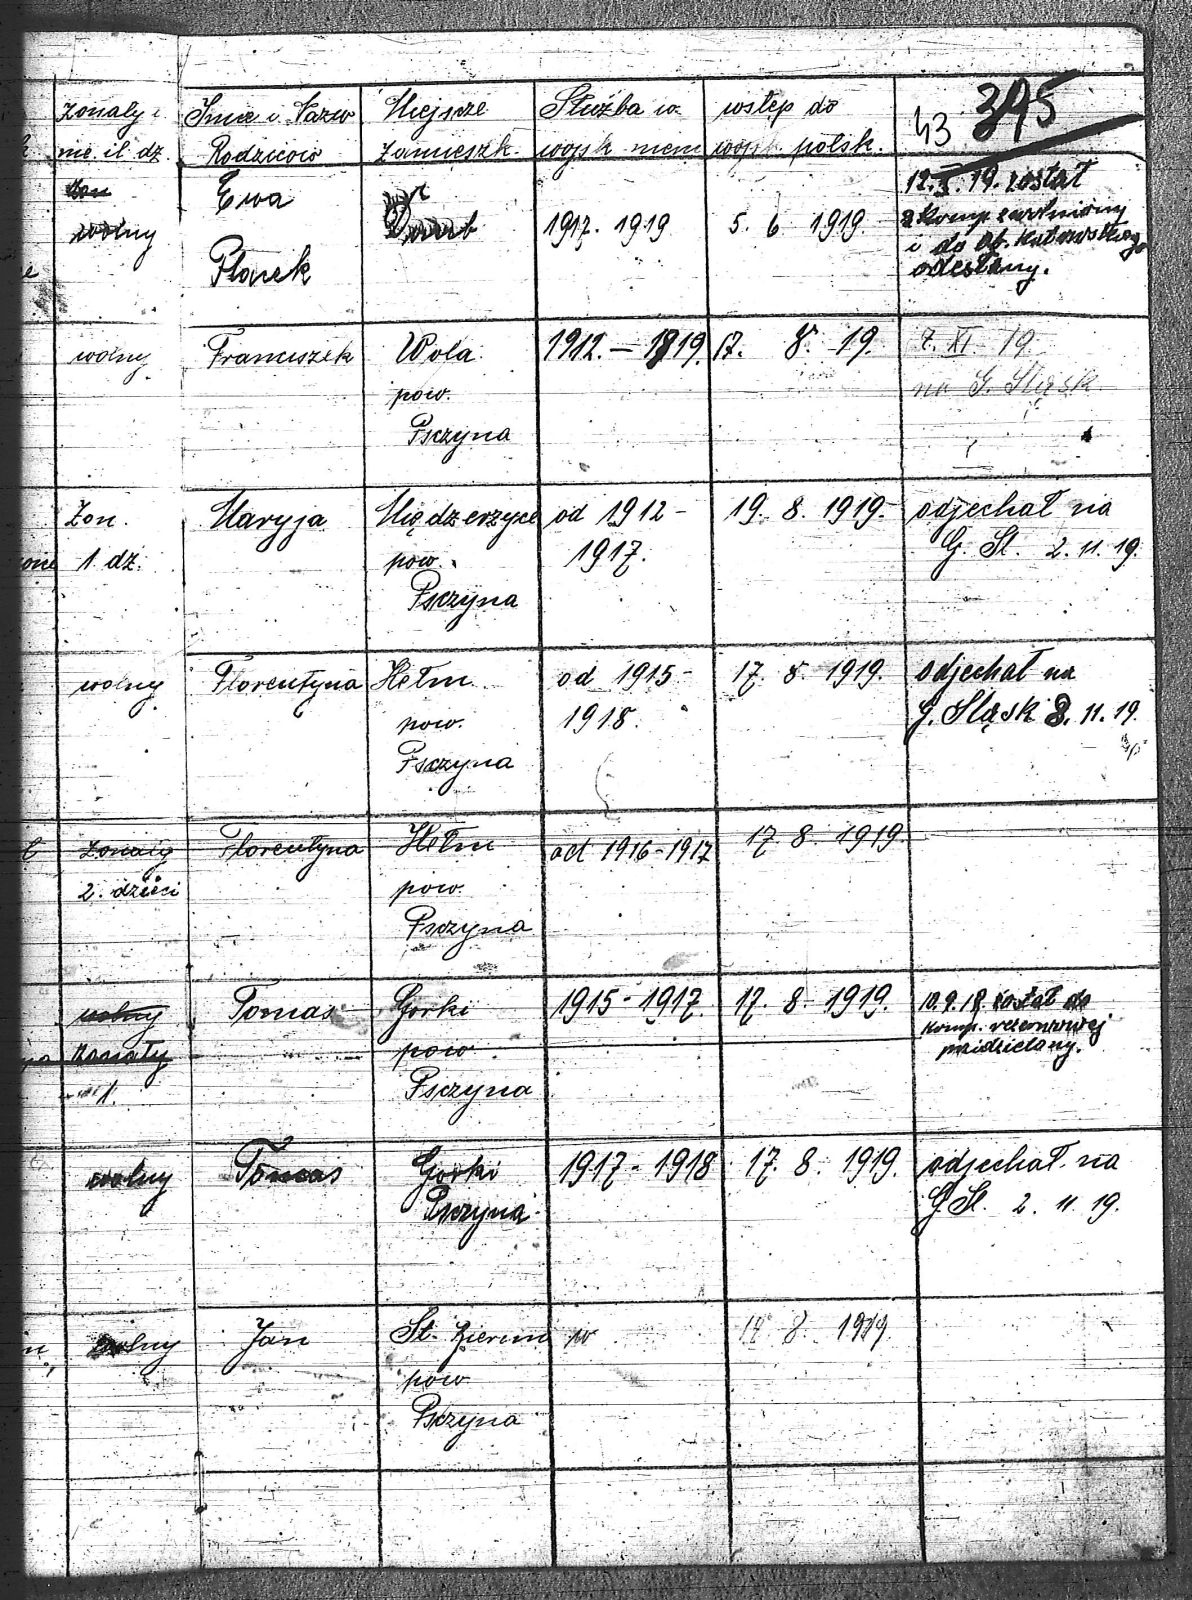 żonaty i Imię i Nazw Miejsce Służba w wstęp do 43 395
nie il. dz. Rodziców zamieszk. wojsk niem wojsk polsk.
żon Ewa 12. 19. został
wolny 1917. 1919 5. 6 1919 z komp. zwolniony
i do ob.
Planek odesłany.
wolny Franciszek Wola 1912. – 1919. 17. 8. 19. 7. XI 19
pow. na G. Śląsk
Psczyna
Żon. Maryja Międzerzyce od 1912 - 19. 8. 1919. odjechał na
1 dz. pow. 1917. G. Śl. 2. 11. 19.
Psczyna
wolny Florentyna Hełm od 1915 - 17. 8. 1919. odjechał na
pow. 1918. G. Śląsk 3. 11. 19.
Psczyna
żonaty Florentyna Hełm od 1916 - 1917 17. 8. 1919.
2. dzieci pow.
Psczyna
wolny Tomas Gorki 1915 - 1917. 17. 8. 1919. 10. 9. 19 został do
żonaty pow komp. rezerwowej
1. Psczyna przidzielany.
wolny Tomas Gorki 1917 - 1918 17. 8. 1919. odjechał na
Psczyna G Śl. 2. 11. 19.
wolny Jan St. Bierun 8. 1919.
pow
Psczyna